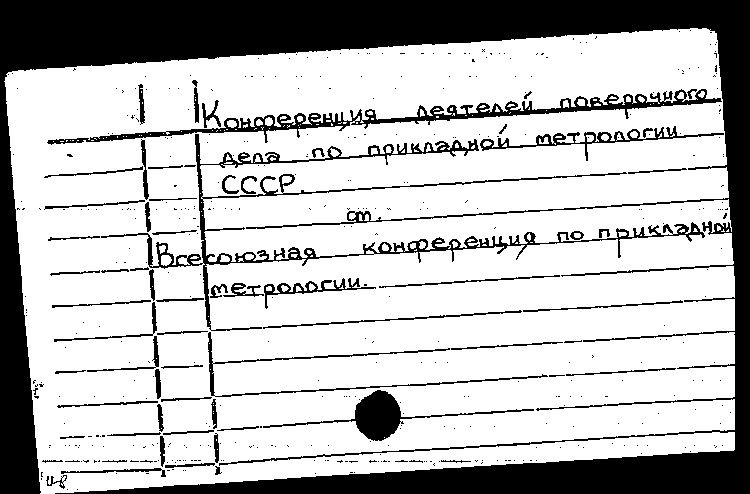 Конференция деятелей поверочного
дела по прикладной метрологии
СССР.
ст.
Всесоюзная конференция по прикладной
метрологии.